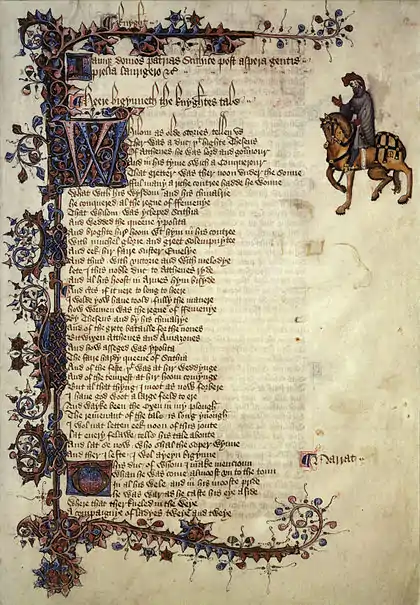 Knyght
Iamque domos patrias Scithice post aspera gentis
prelia laurigero &c
Heere bigynneth the knyghtes tale
Whilom as olde stories tellen vs
Ther was a duc yt highte Theseus
Of Atthenes he was lord and gouernour
And in his tyme swich a conquerour
That gretter was ther noon vnder the sonne
Ful many a riche contree hadde he wonne
What with his wysdom and his chiualrie
He conquered al the regne of ffemenye
That whilom was ycleped Scithia
And wedded the queene ypolita
And broghte hir hoom wt hym in his contree
With muchel glorie and greet solempnytee
And eek hir faire suster Emelye
And thus with victorie and with melodye
Lete I this noble duc to Atthenes ryde
And al his hoost in Armes hym bisyde
And certes if it nere to long to heere
I wolde yow haue toold fully the manere
How wonnen was the regne of ffemenye
By Theseus and by his chiualrye
And of the grete bataille for the nones
Bitwixen Atthenes and Amazones
And how asseged was ypolita
The faire hardy queene of Scithia
And of the feste yt was at hir weddynge
And of the tempest at hir hoom comynge
But al that thyng I moot as now forbere
I haue god woot a large feeld to ere
And wayke been the Oxen in my plough
The remenant of the tale is long ynough
I wol nat letten eek noon of this route
Lat euery felawe telle his tale aboute
And lat se now who shal the soper wynne
And ther I lefte I wol ayeyn bigynne
This duc of whom I make mencioun
Narrat
Whan he was come almoost vn to the toun
In al his wele and in his mooste pride
He was war as he caste his eye aside
Where that ther kneled in the weye
A compaignye of ladyes tweye and tweye